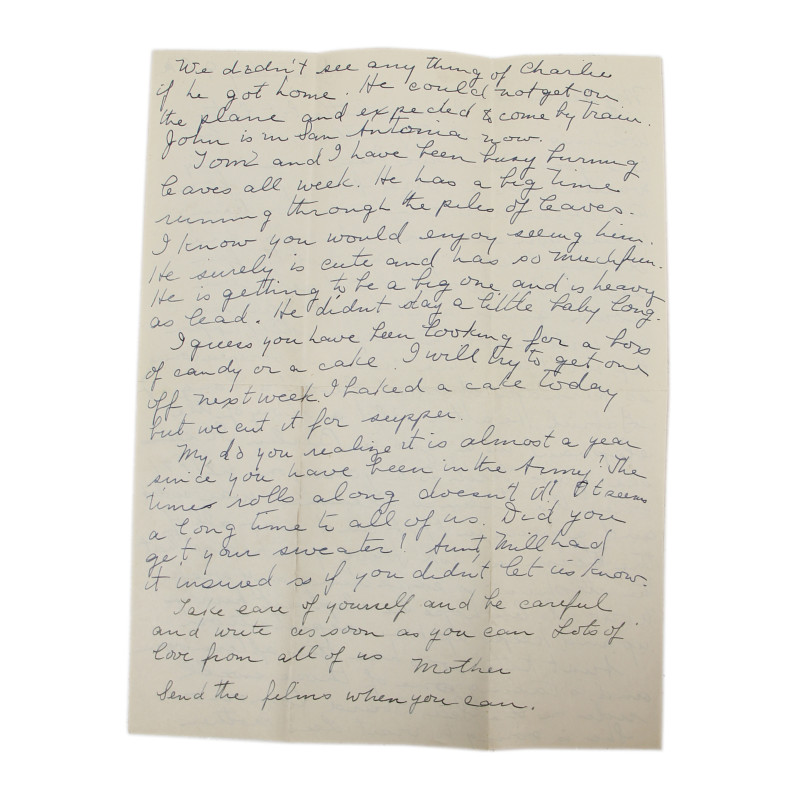 We didn't see any thing of Charlie
if he got home. He could not get on
the plane and expected to come by train.
John is in San Antonia now.
and I have been busy burning
leaves all week. He has a big time
running through the piles of leaves.
I know you would enjoy seeing him.
He surely is cute and has so much fun.
He is getting to be a big one and is heavy
as lead. He didn't stay a little baby long.
I guess you have been looking for a box
of candy or a cake. I will try to get one
off next week. I baked a cake today
but we cut it for supper.
My do you realize it is almost a year
since you have been in the Army? The
times rolls along doesn't it! It seems
a long time to all of us. Did you
get your sweater! Aunt Mill had
it insured so if you didn't let us know.
Take care of yourself and be careful
and write as soon as you can Lots of
love from all of us Mother
Send the films when you can.